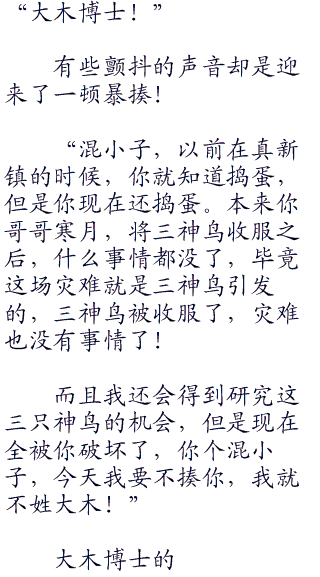 “大木博士！”
有些颤抖的声音却是迎
来了一顿暴揍！
“混小子，以前在真新
镇的时候，你就知道捣蛋，
但是你现在还捣蛋。本来你
哥哥寒月，将三神鸟收服之
后，什么事情都没了，毕竟
这场灾难就是三神鸟引发
的，三神鸟被收服了，灾难
也没有事情了！
而且我还会得到研究这
三只神鸟的机会，但是现在
全被你破坏了，你个混小
子，今天我要不揍你，我就
不姓大木！”
大木博士的